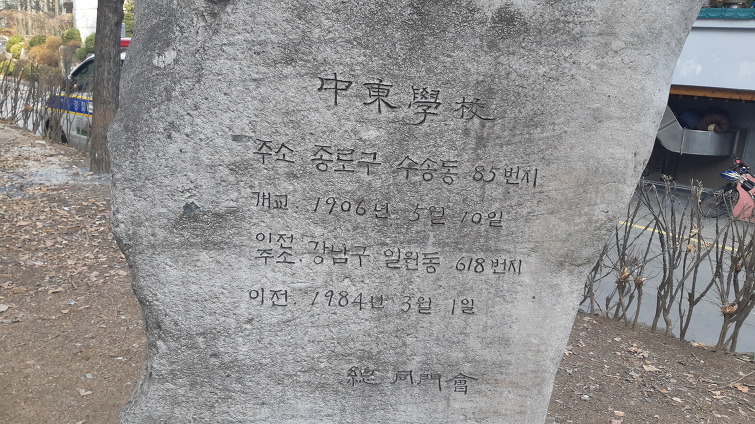 中東學校
주소 종로구 수송동 85번지
개교. 1906년 5월 10일
이전
주소. 강남구 일원동 618번지
이전. 1984년 3월 1일
總同門會